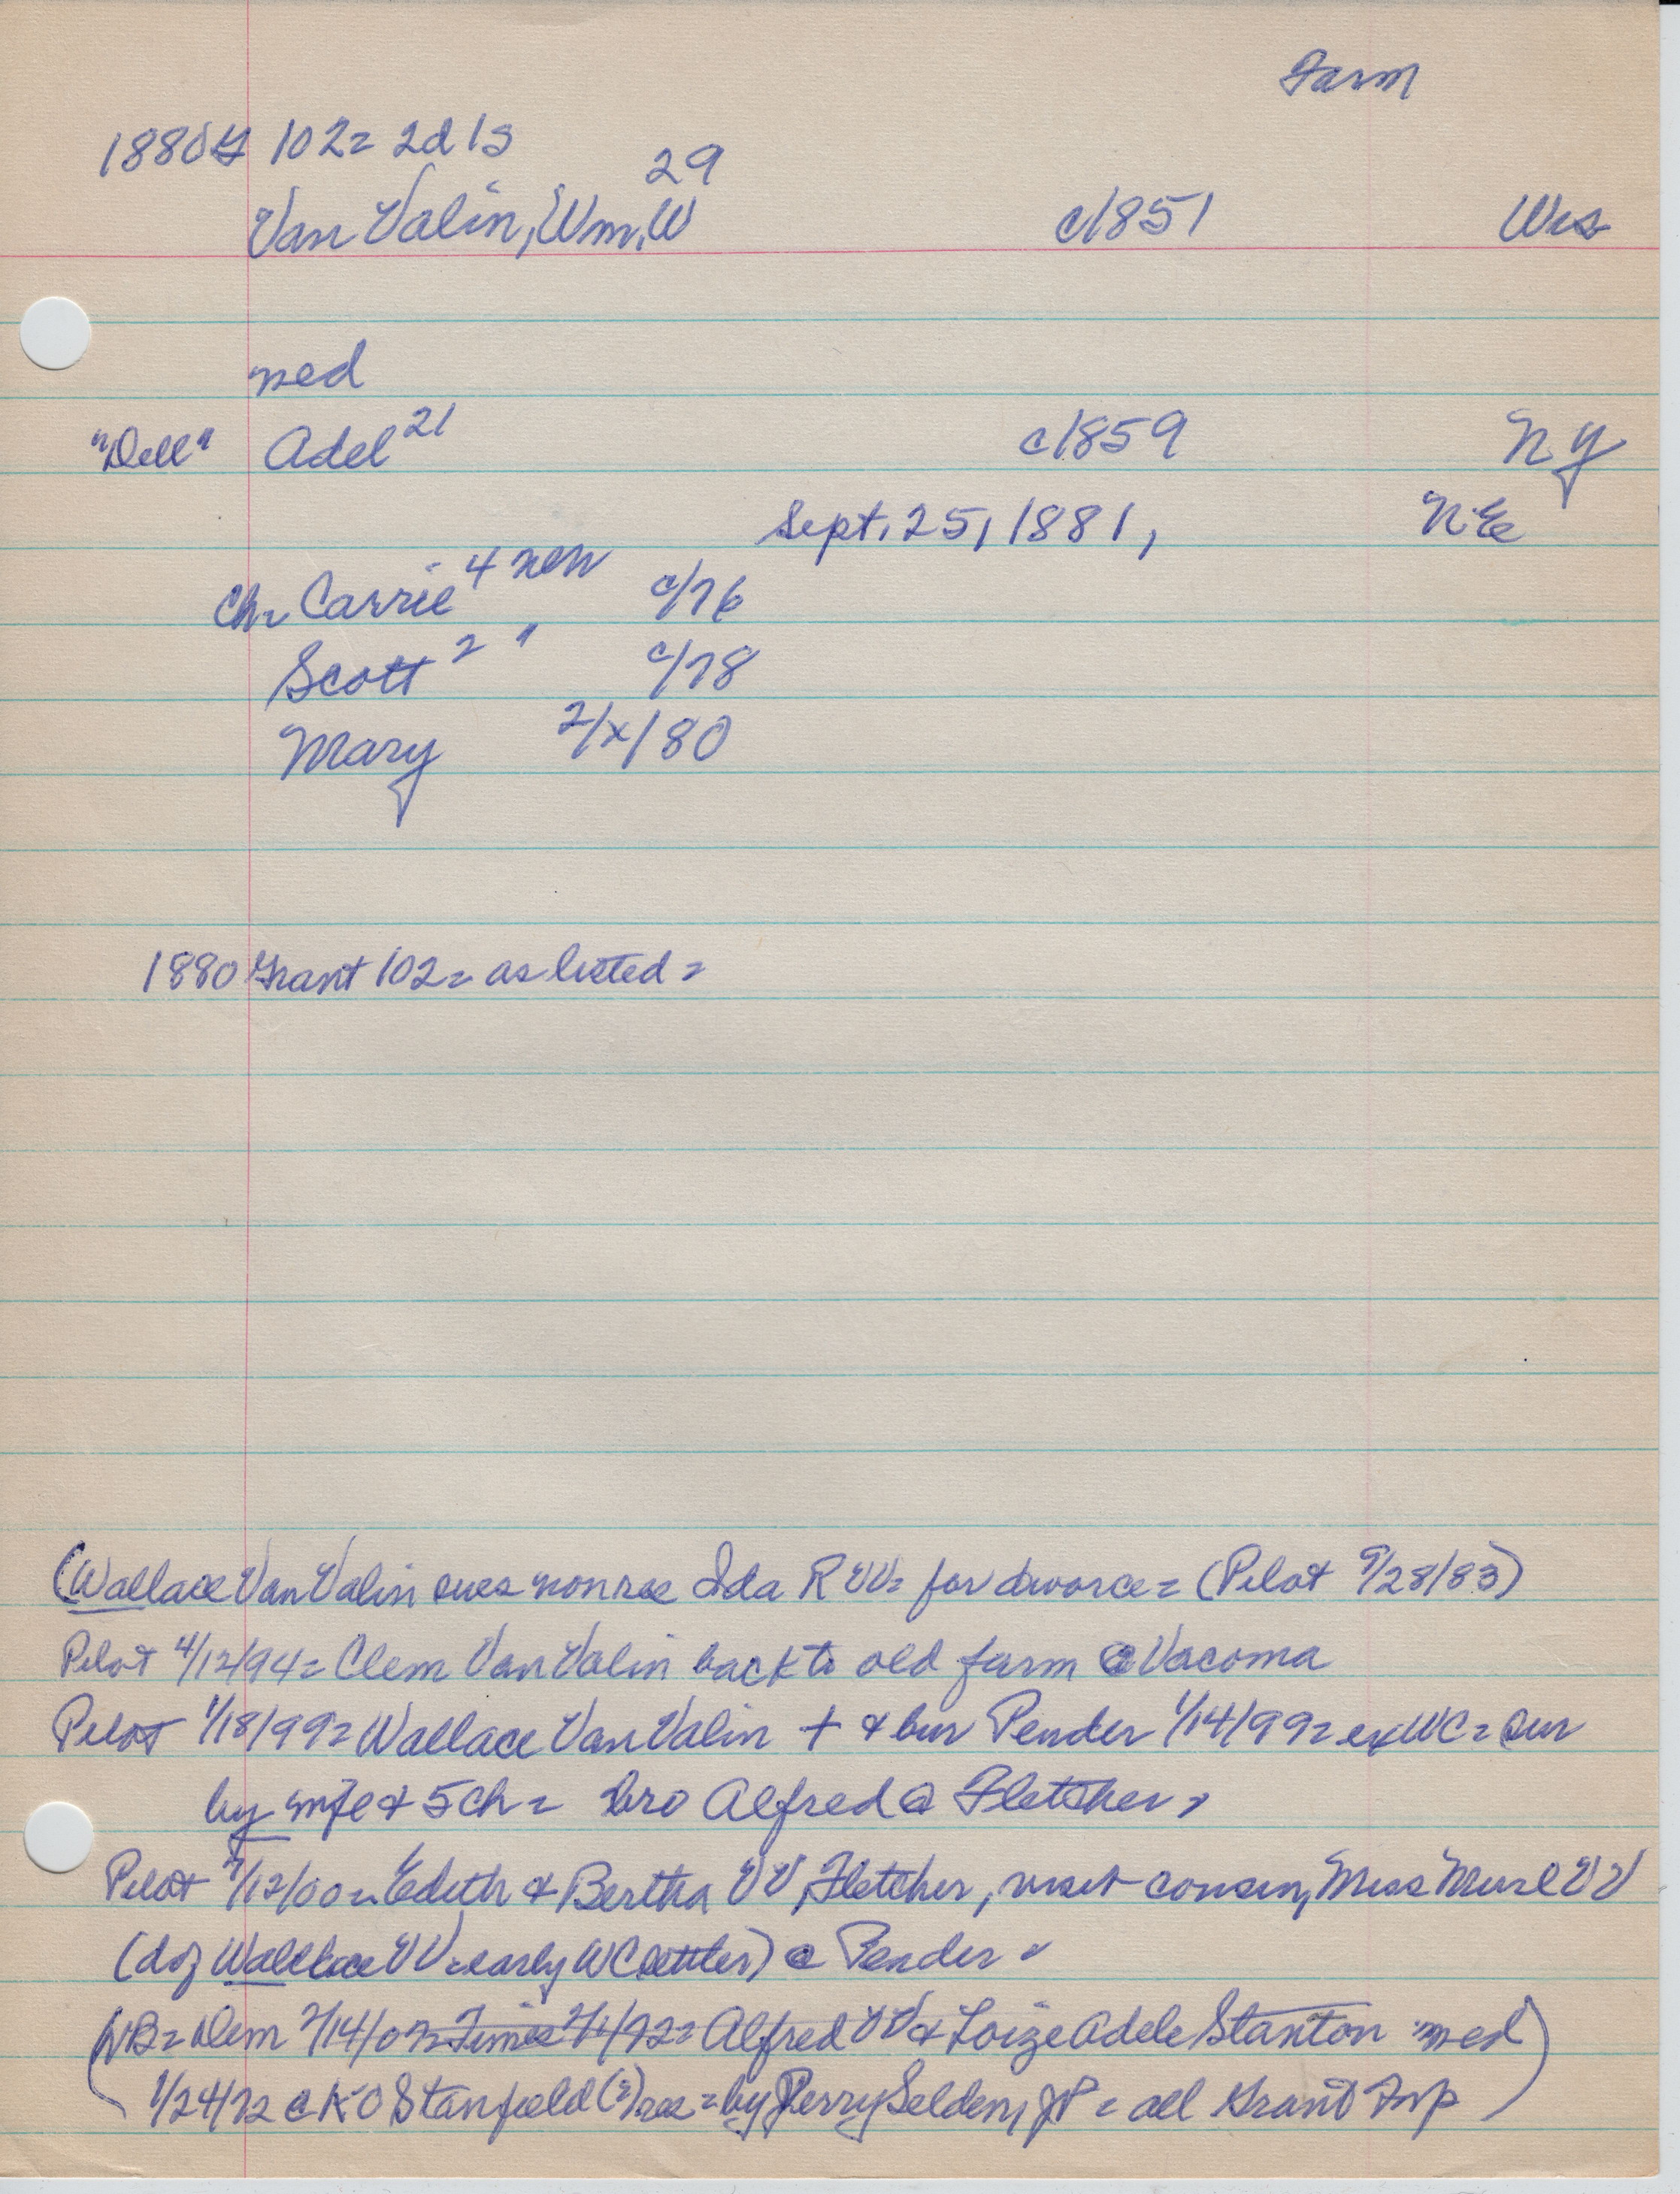 Farm
1880G 102= 2d 1s
29
Van Valin, Wm. W c/1851 Wis
med
"Dell" Adel 21 c/1859 NY
Sept. 25, 1881, NE
Ch= Carrie 4 c/76
Scott 2 " c/78
Mary 2/x/80
1880 Grant 102= as listed=
(Wallace Van Valin sues nonres Ida R VV= for divorce= (Pilot 9/28/83)
Pilot 4/12/94= Clem Van Valin back to old farm @ Vacoma
Pilot 1/18/99= Wallace Van Valin + & bur Pender 1/14/99= exWC= sur
by wife & 5ch= bro Alfred @ Fletcher,
Pilot 7/12/00= Edith & Bertha VV, Fletcher, visit cousin, Miss Murl VV
(d of Wallace VV= early WC settler) @ Pender=
(NB= Dem Times = Alfred VV & Adele Stanton med
1/24/72 @ K O Stanfield (?) res= by Perry Selden, JP= all Grant Twp)